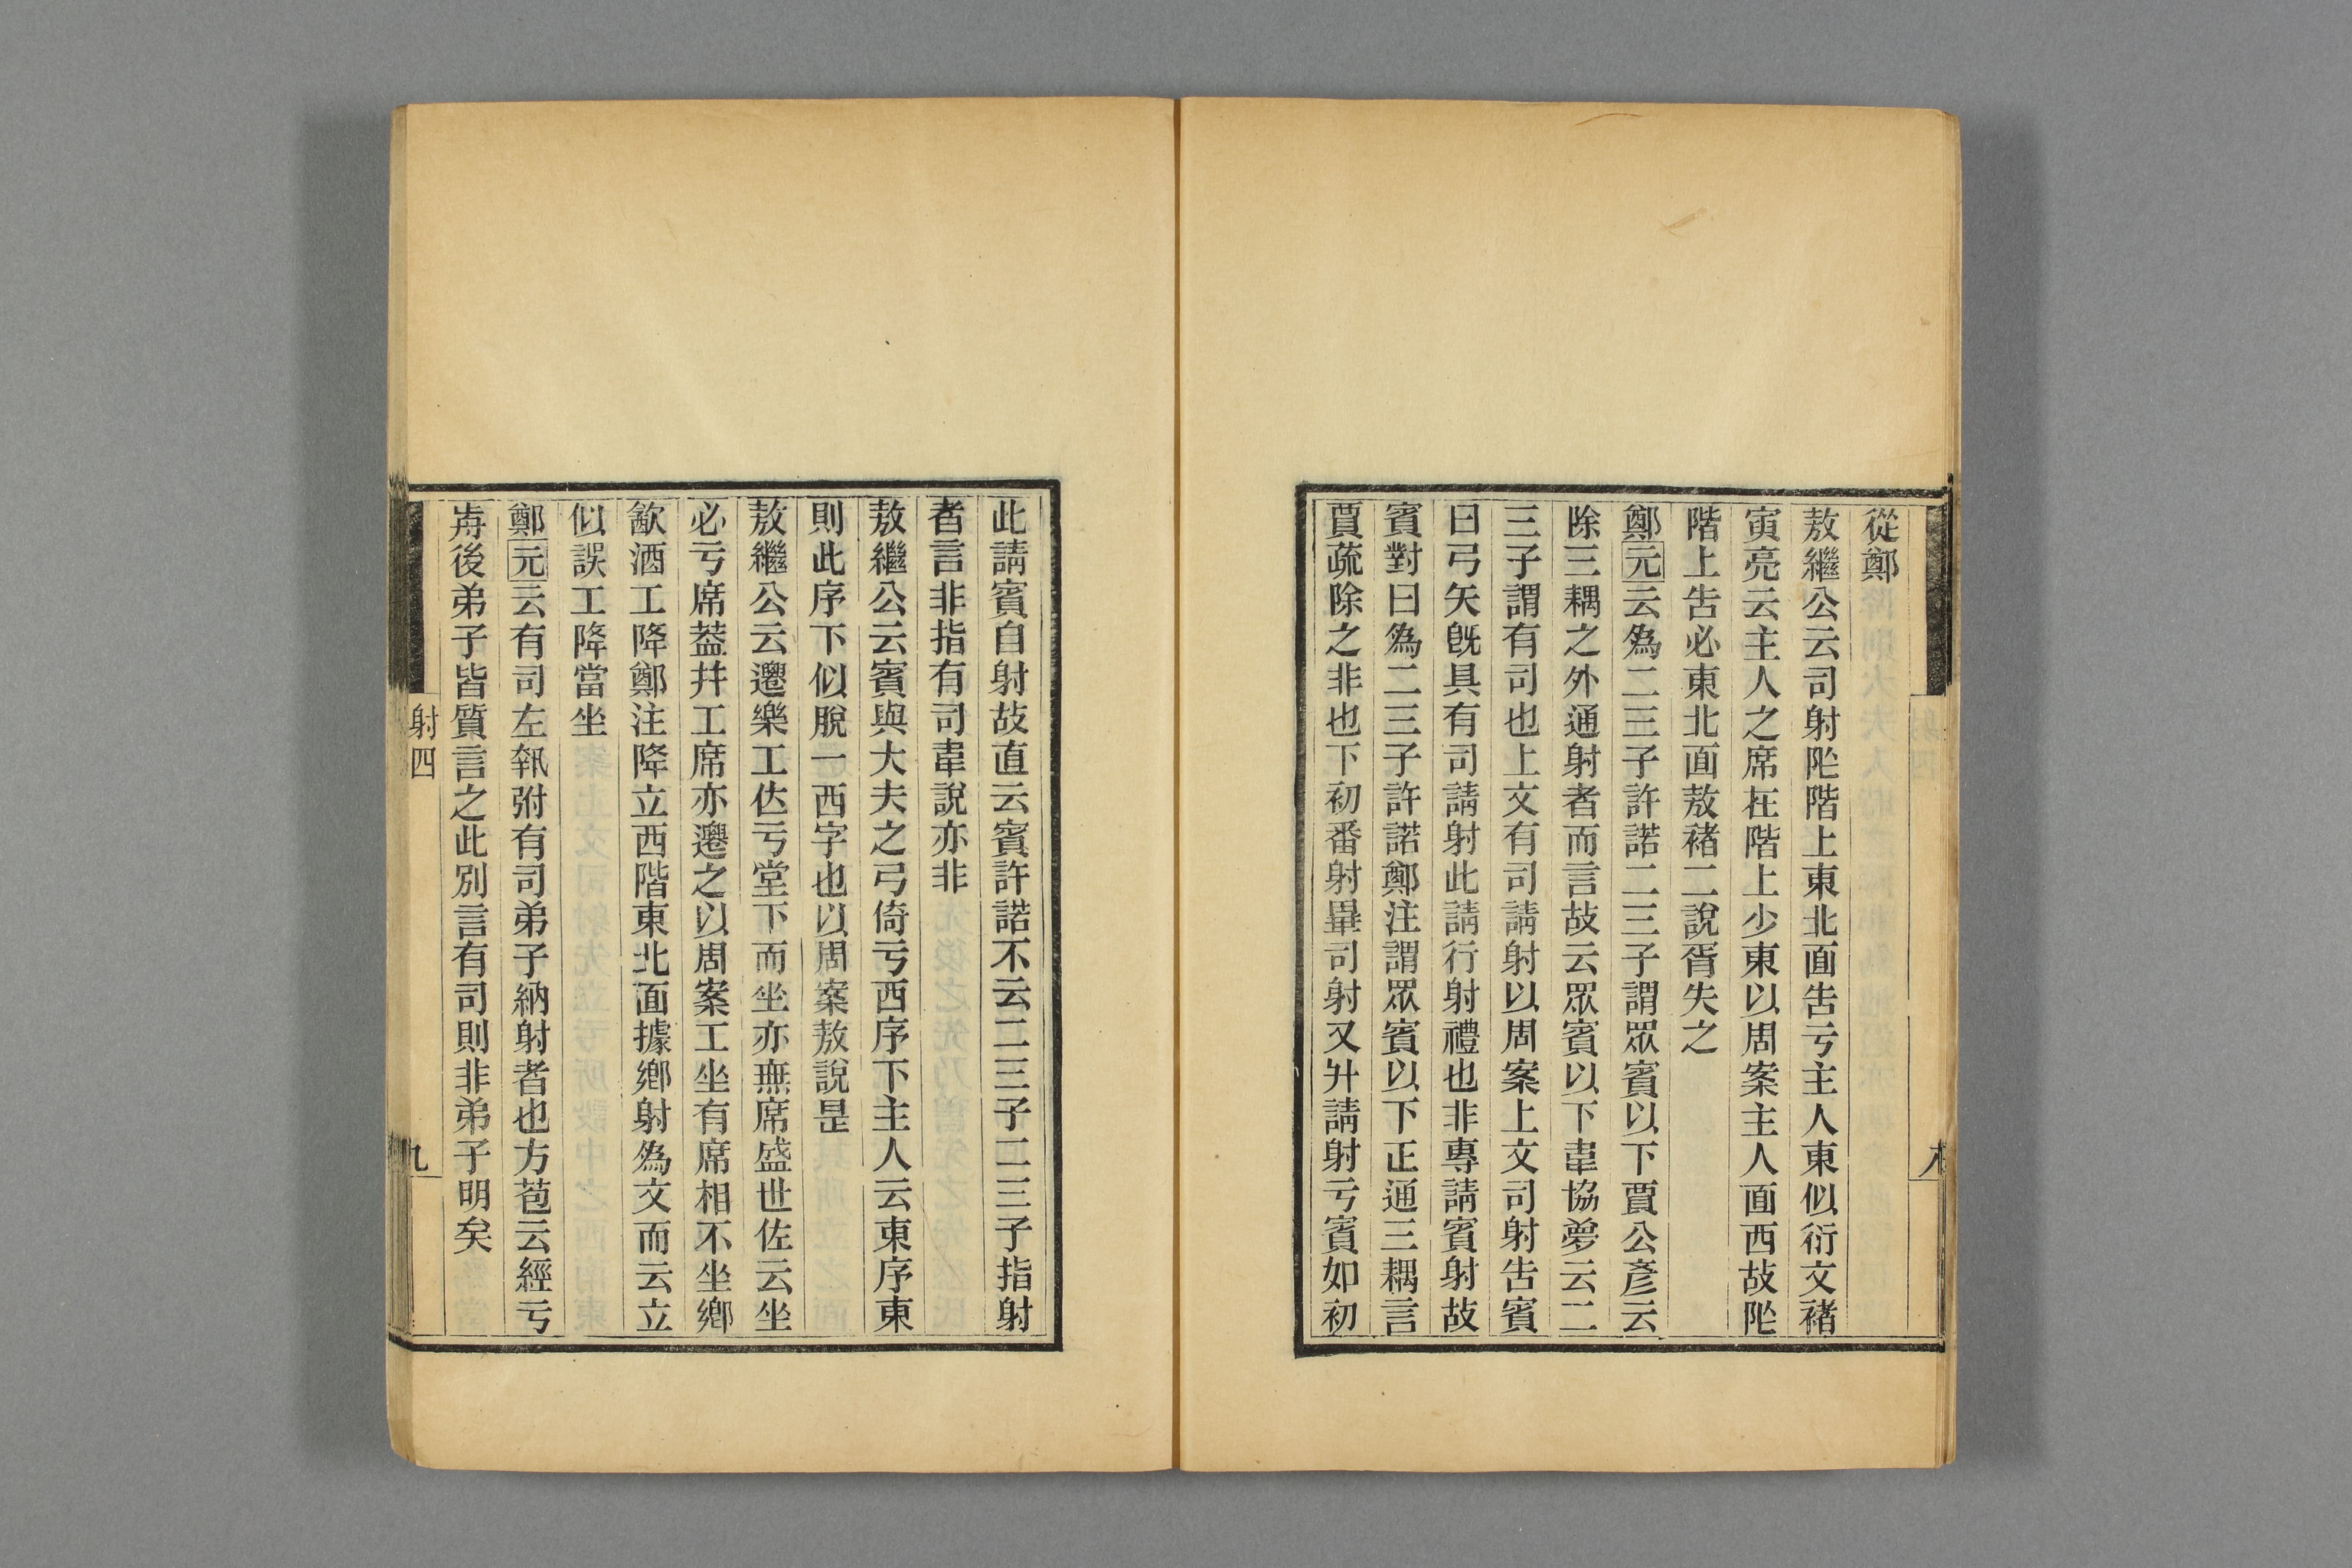 從鄭
敖繼公云司射阼階上東北面告亏主人東似衍文褚
寅亮云主人之席在階上少東以周案主人面西故阼
階上告必東北面敖褚二說胥失之
鄭元云為二三子許諾二三子謂眾賓以下賈公彥云
除三耦之外通射者而言故云眾賓以下韋協夢云二
三子謂有司也上文有司請射以周案上文司射告賓
曰弓矢旣具有司請射此請行射禮也非專請賓射故
賓對曰為二三子許諾鄭注謂眾賓以下正通三耦言
賈疏除之非也下初番射畢司射又升請射亏賓如初
八
此請賓自射故直云賓許諾不云二三子二三子指射
者言非指有司韋說亦非
敖繼公云賓與大夫之弓倚亏西序下主人云東序東
則此序下似脫一西字也以周案敖說是
敖繼公云遷樂工㐌亏堂下而坐亦無席盛世佐云坐
必亏席葢幷工席亦遷之以周案工坐有席相不坐鄉
飮酒工降鄭注降立西階東北面據鄉射為文而云立
似誤工降當坐
鄭元云有司左執弣有司弟子納射者也方苞云經亏
歬後弟子皆質言之此別言有司則非弟子明矣
射四
九